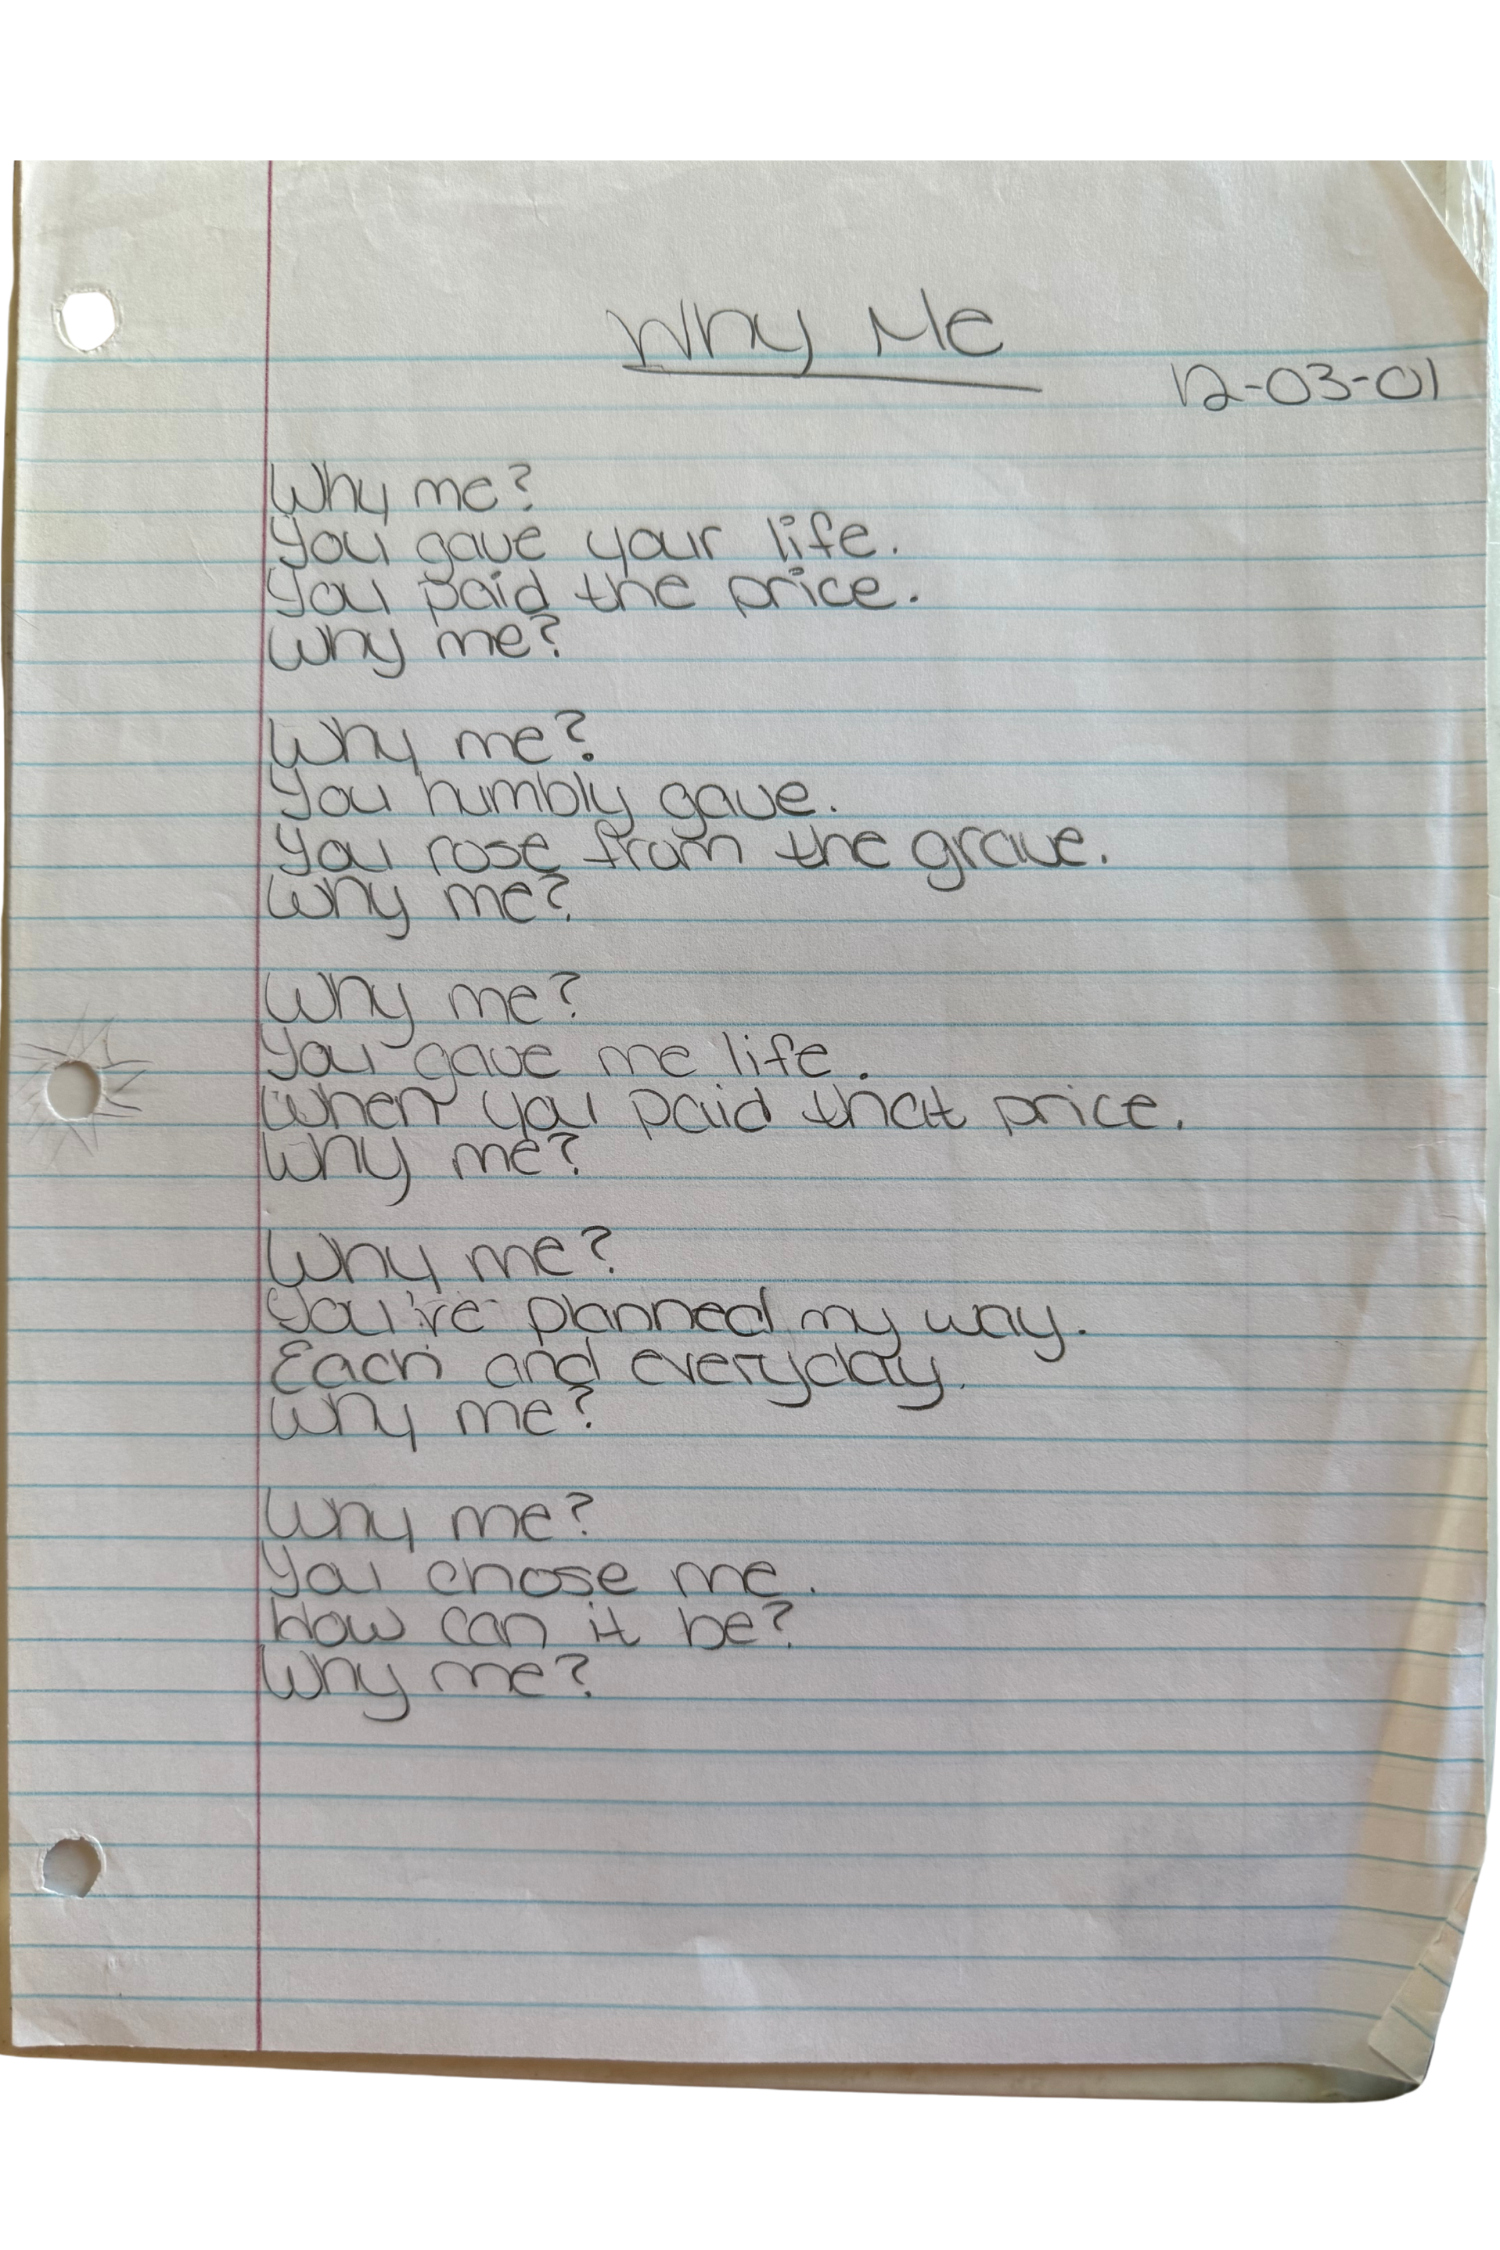 Why Me
12-03-01
Why me?
You gave your life.
You paid the price.
Why me?
Why me?
You humbly gave.
You rose from the grave.
Why me?
Why me?
You gave me life.
When you paid that price.
Why me?
Why me?
You've planned my way.
Each and everyday.
Why me?
Why me?
You chose me.
How can it be?
Why me?